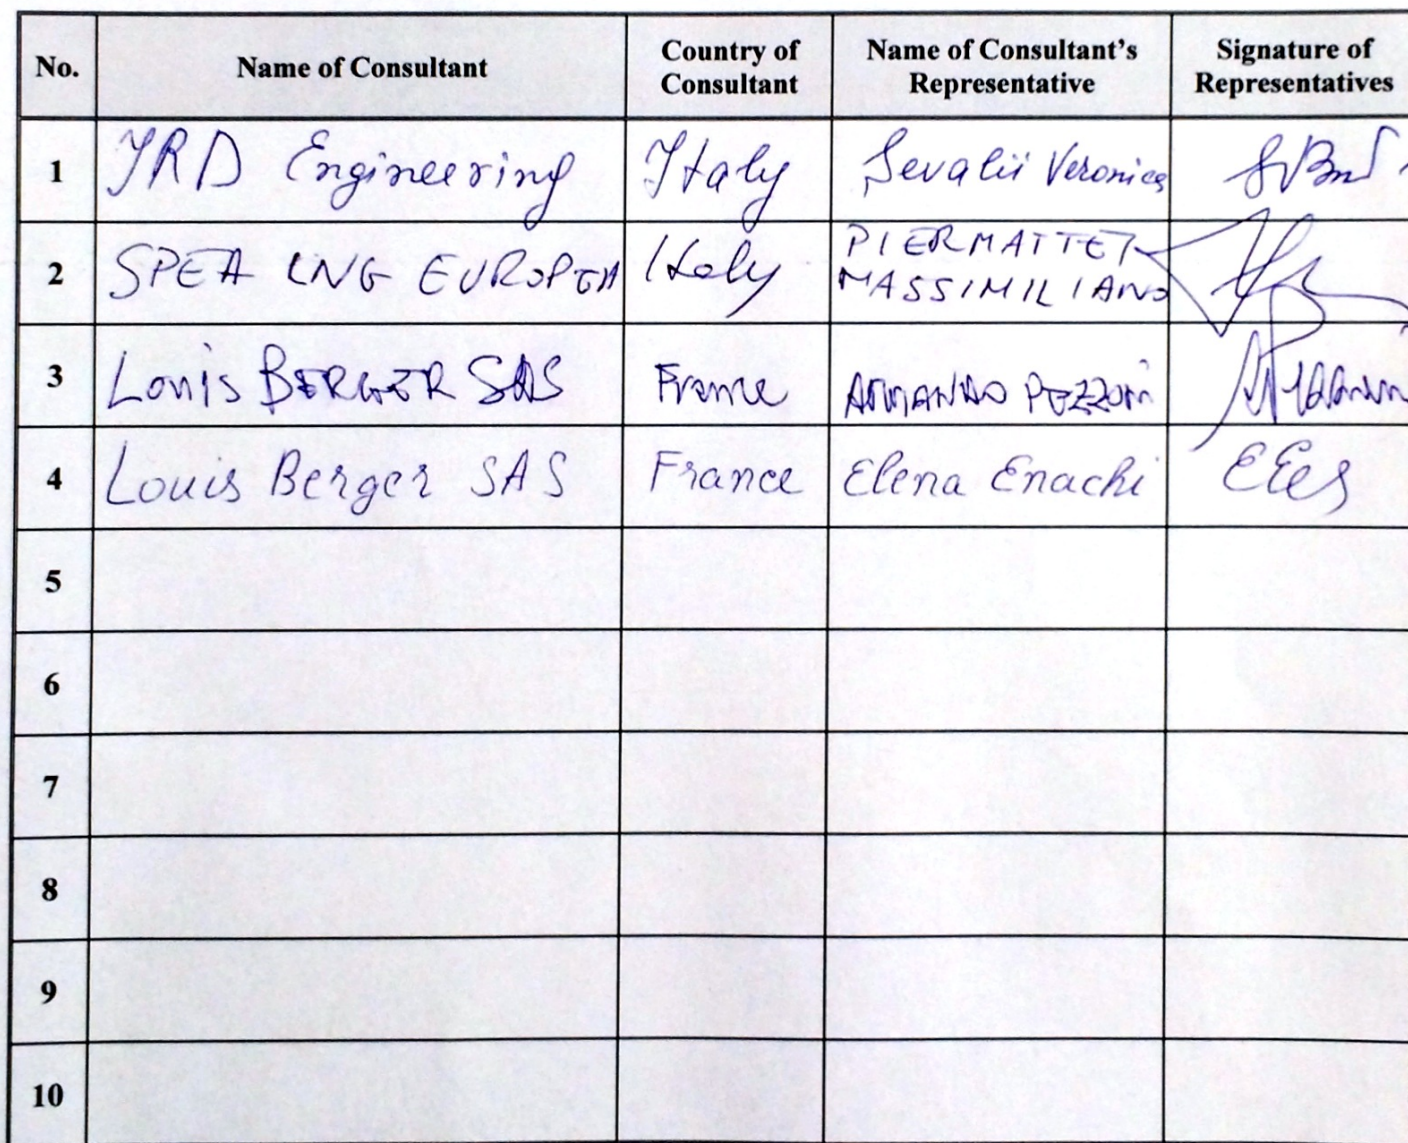 No. Name of Consultant Country of Consultant Name of Consultant's Representative Signature of Representatives
1 IRD Engineering Italy Veronica
2 SPEA ING EUROPEA Italy PIERMATTEI MASSIMILIANO
3 Louis BERGER SAS France ARMANDO PEZZONI
4 Louis Berger SAS France Elena Enachi
5
6
7
8
9
10